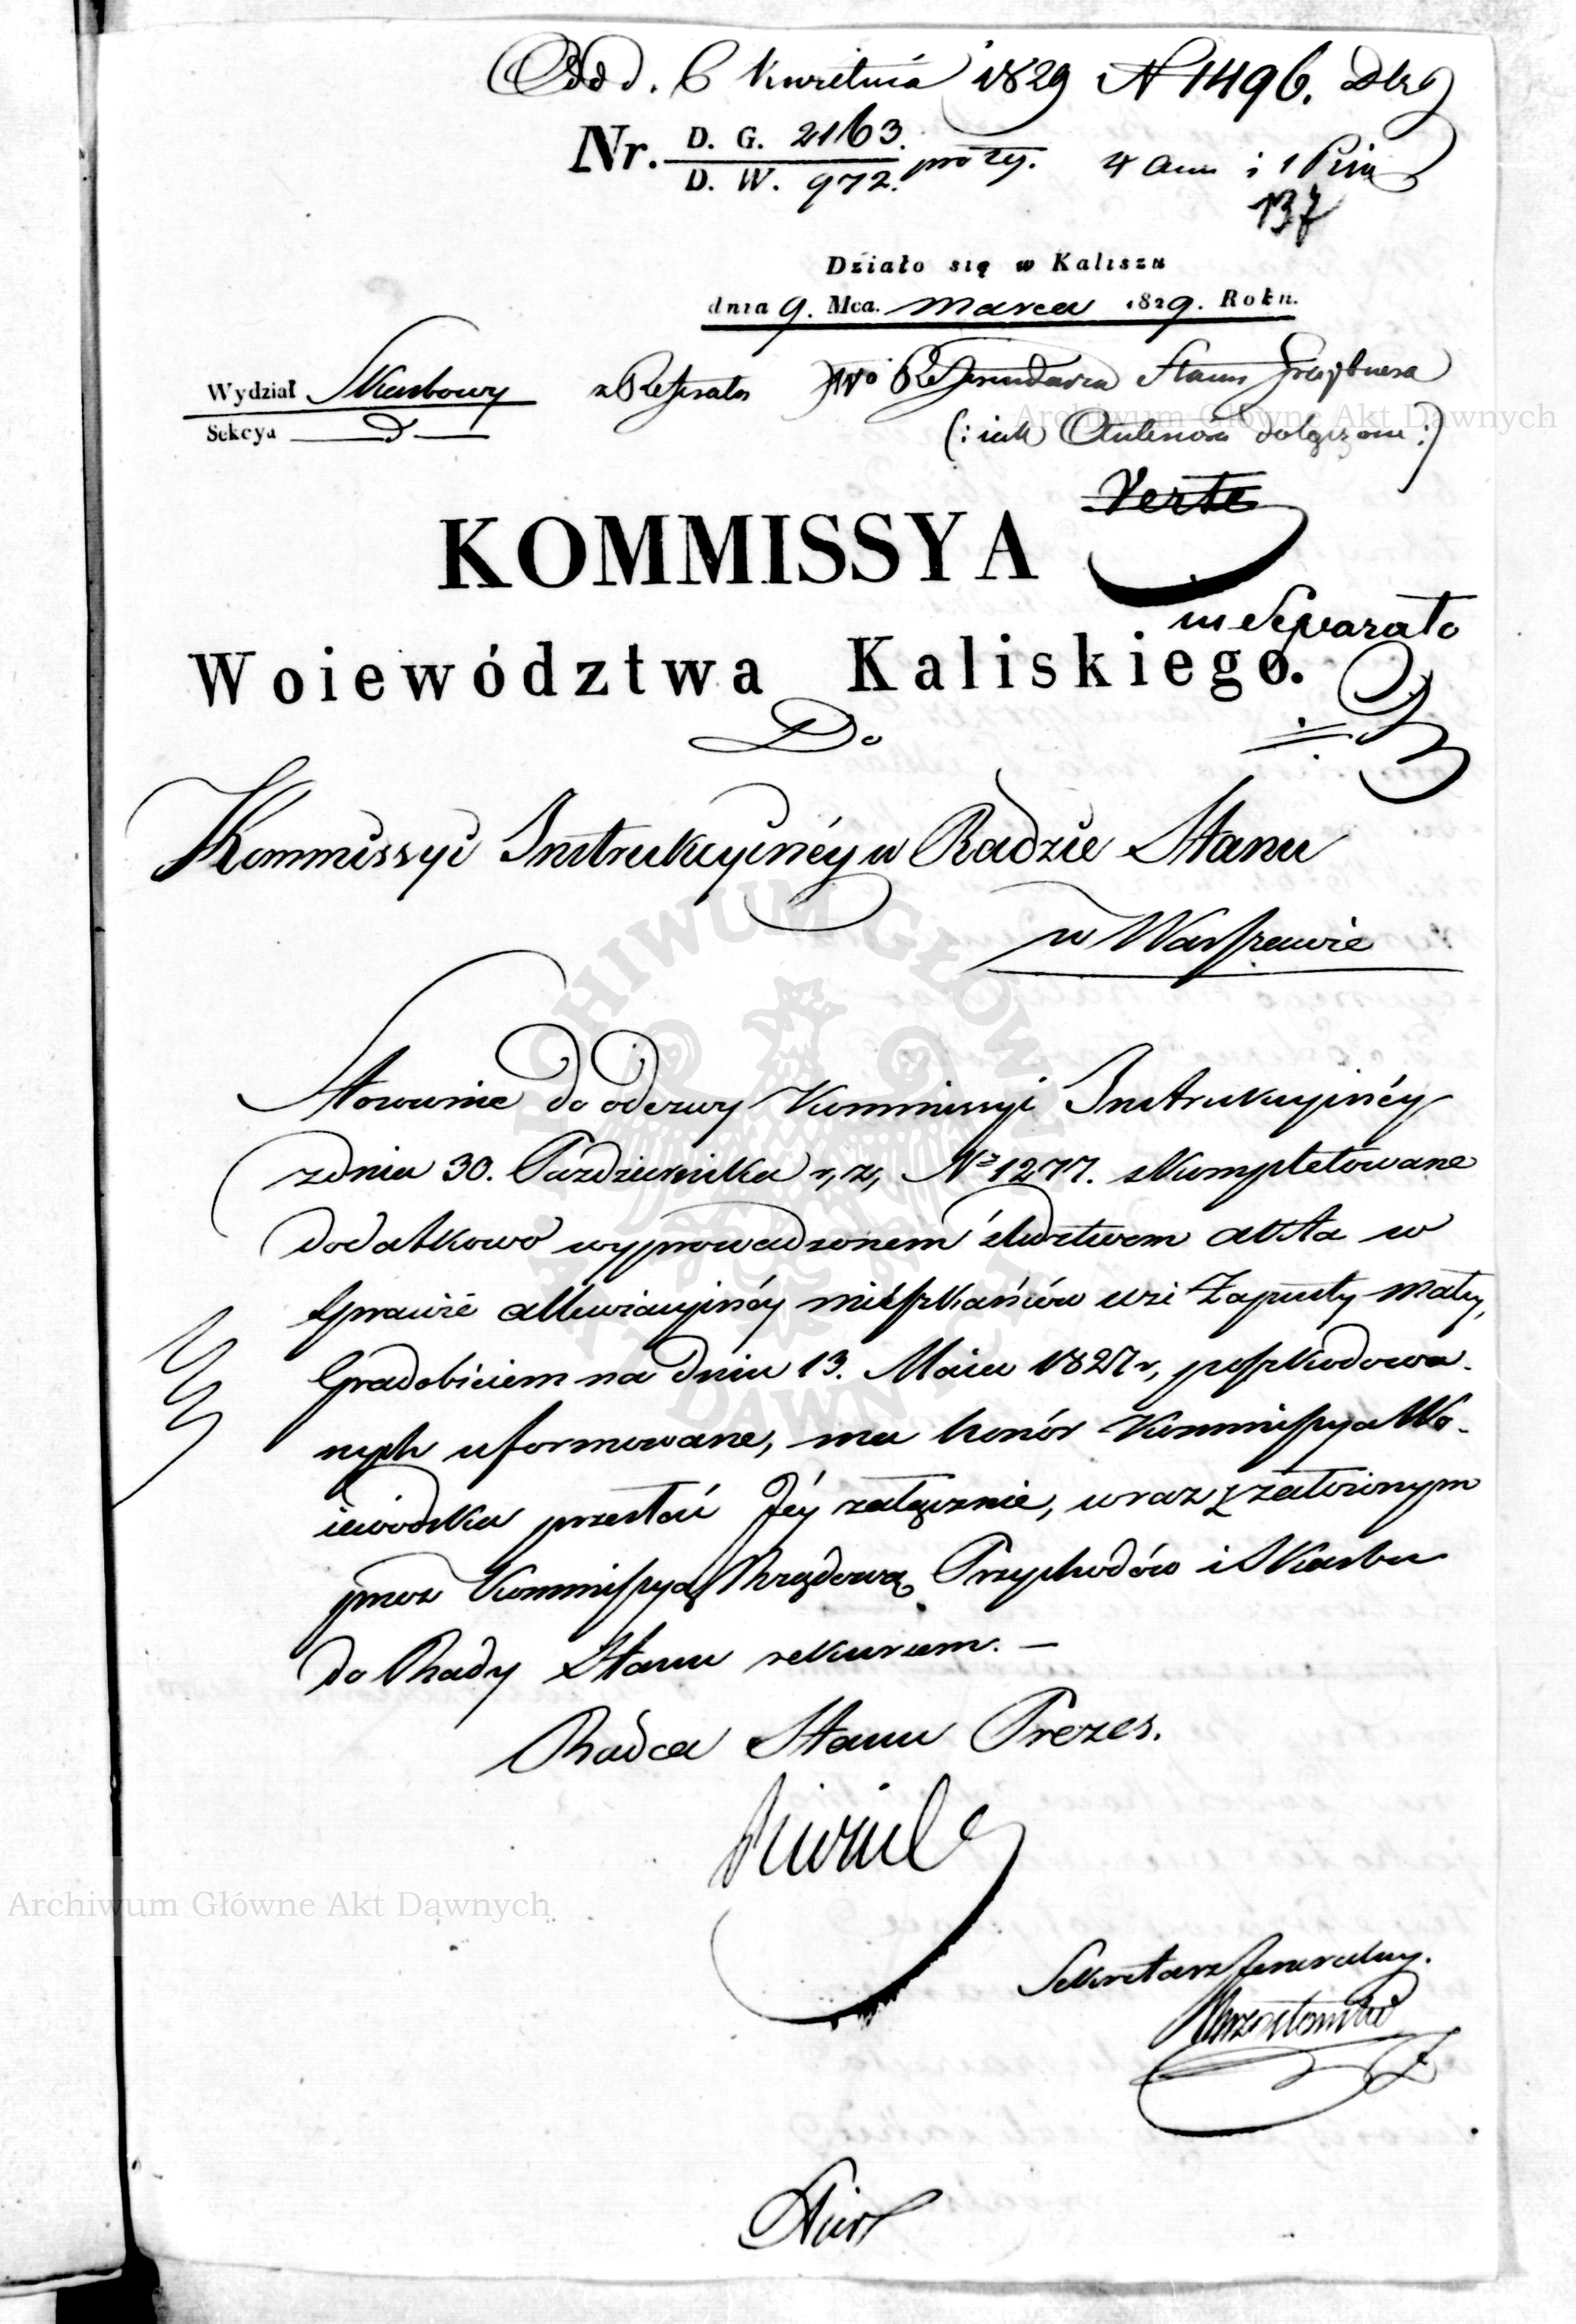 Odd d. 6 Kwietnia 1829 N 1496.
Nr. D. G. 2163.
D. W. 972.
4 i 1
137
Działo się w Kaliszu
dnia 9. Mca. Marca 1829. Roku.
Wydział Skarbowy
Sekcya
z Referatu Referendarza Stanu
(: iak dołączone :)
Verte
in Separato
KOMMISSYA
Woiewództwa Kaliskiego.
Do
Kommissyi Instrukcyinéy w Radzie Stanu
w Warszawie
Stosownie do odezwy Kommissyi Instrukcyinéy
z dnia 30. Października r, z, No 1277. skompletowane
dodatkowo wyprowadzonem śledztwem akta w
Sprawie allewiacyinéy mieszkańców wsi Zapusty małey,
Gradobiciem na dniu 13. Maia 1827 r, poszkodowa-
nych uformowane, ma honór Kommissya Wo-
iewódzka przesłać Jéy załącznie, wraz z zatwionym
przez Kommissyą Rządową Przychodów i Skarbu
do Rady Stanu rekursem. —
Radca Stanu Prezes.
Sekretarz Jeneralny.
Archiwum Główne Akt Dawnych
Archiwum Główne Akt Dawnych
ARCHIWUM GŁÓWNE AKT DAWNYCH